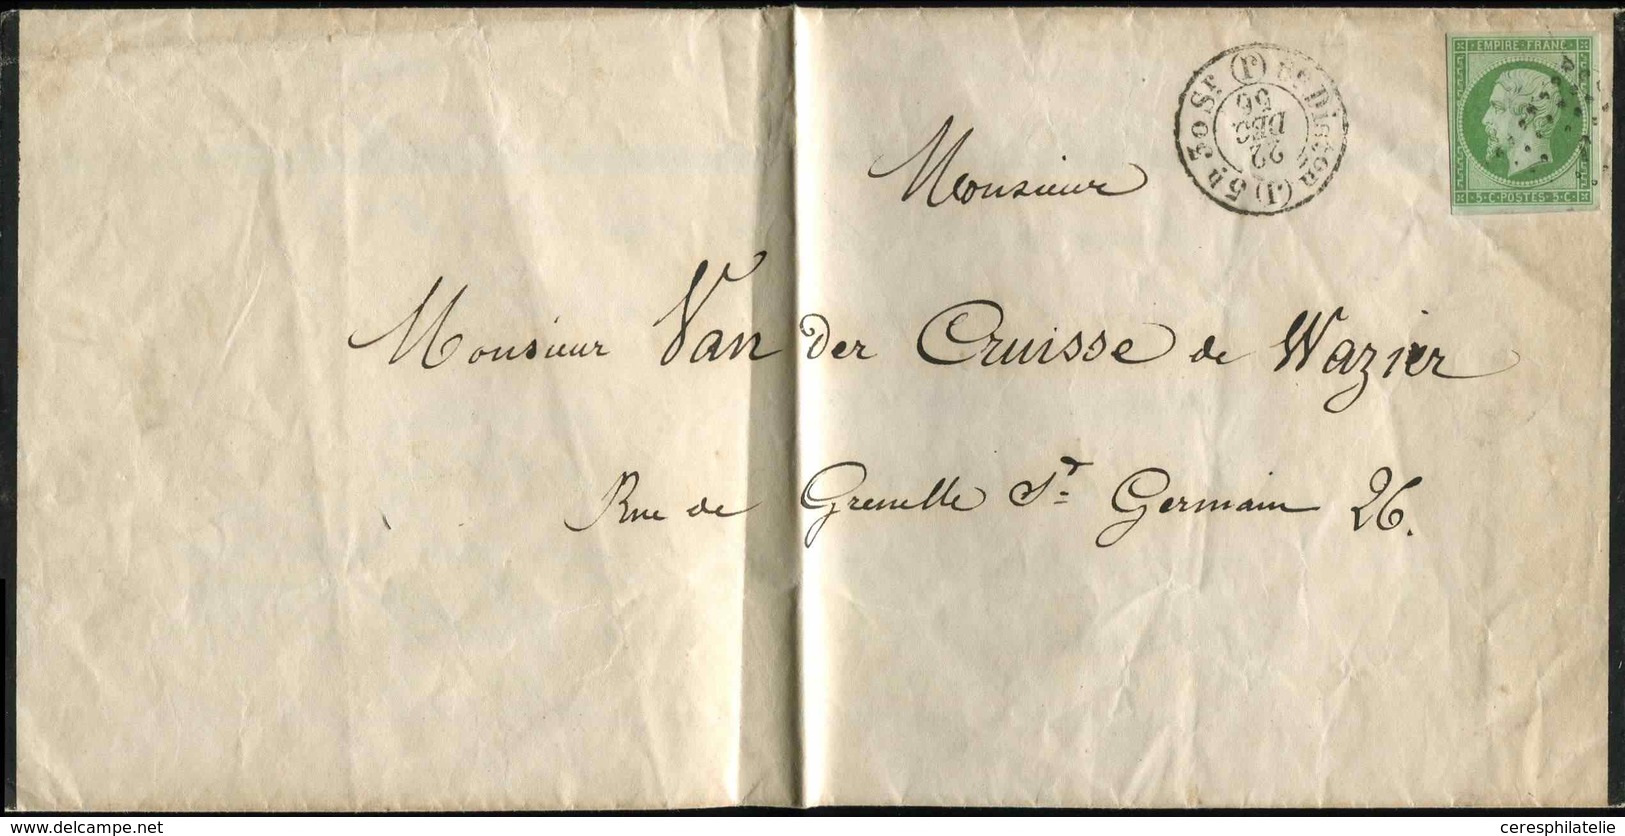 EMPIRE FRANC
5·C·POSTES·5·C·
Bon Dist.on (J) 5h 30 Sr (J)
22
DEC
56
Monsieur
Monsieur Van der Cruisse de Wazier
Rue de Grenelle St Germain 26.
www.delcampe.net
ceresphilatelie